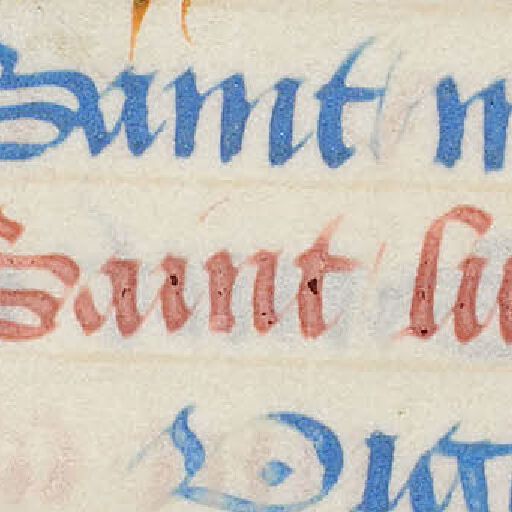 Saint m
Saint lu